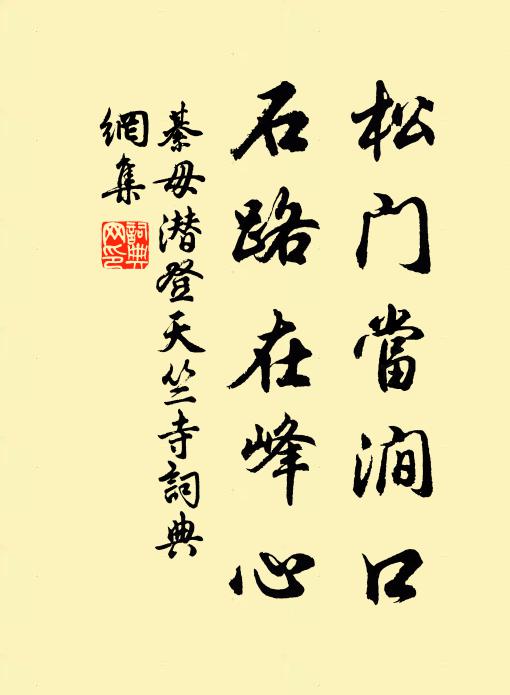 松门當澗口
石路在峰心
綦毋潜登天竺寺詞典
網集
詞典
网印